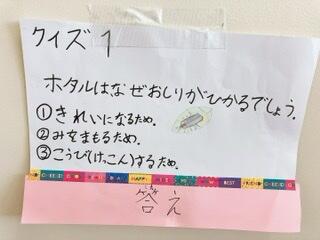 クイズ1
ホタルはなぜおしりがひかるでしょう.
①きれいになるため.
②みをまもるため.
③こうび(けっこん)するため.
HAPPY
BEST
FRIEND
答え